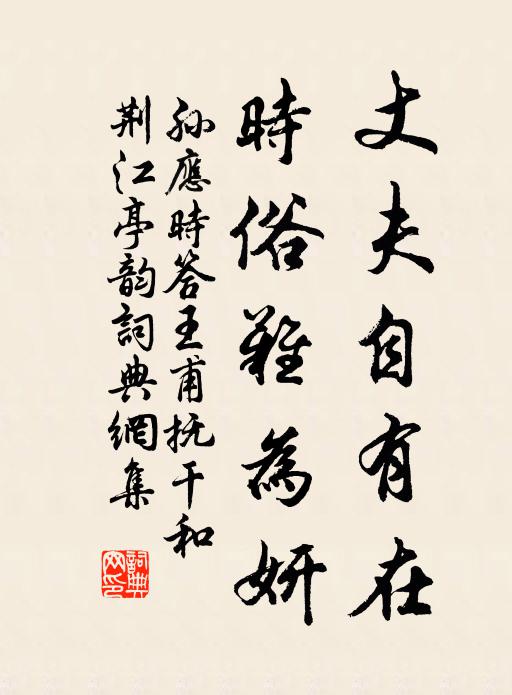 丈夫自有在
時俗難為妍
孙應時答王甫抚干和
荆江亭韵詞典網集
詞典网印